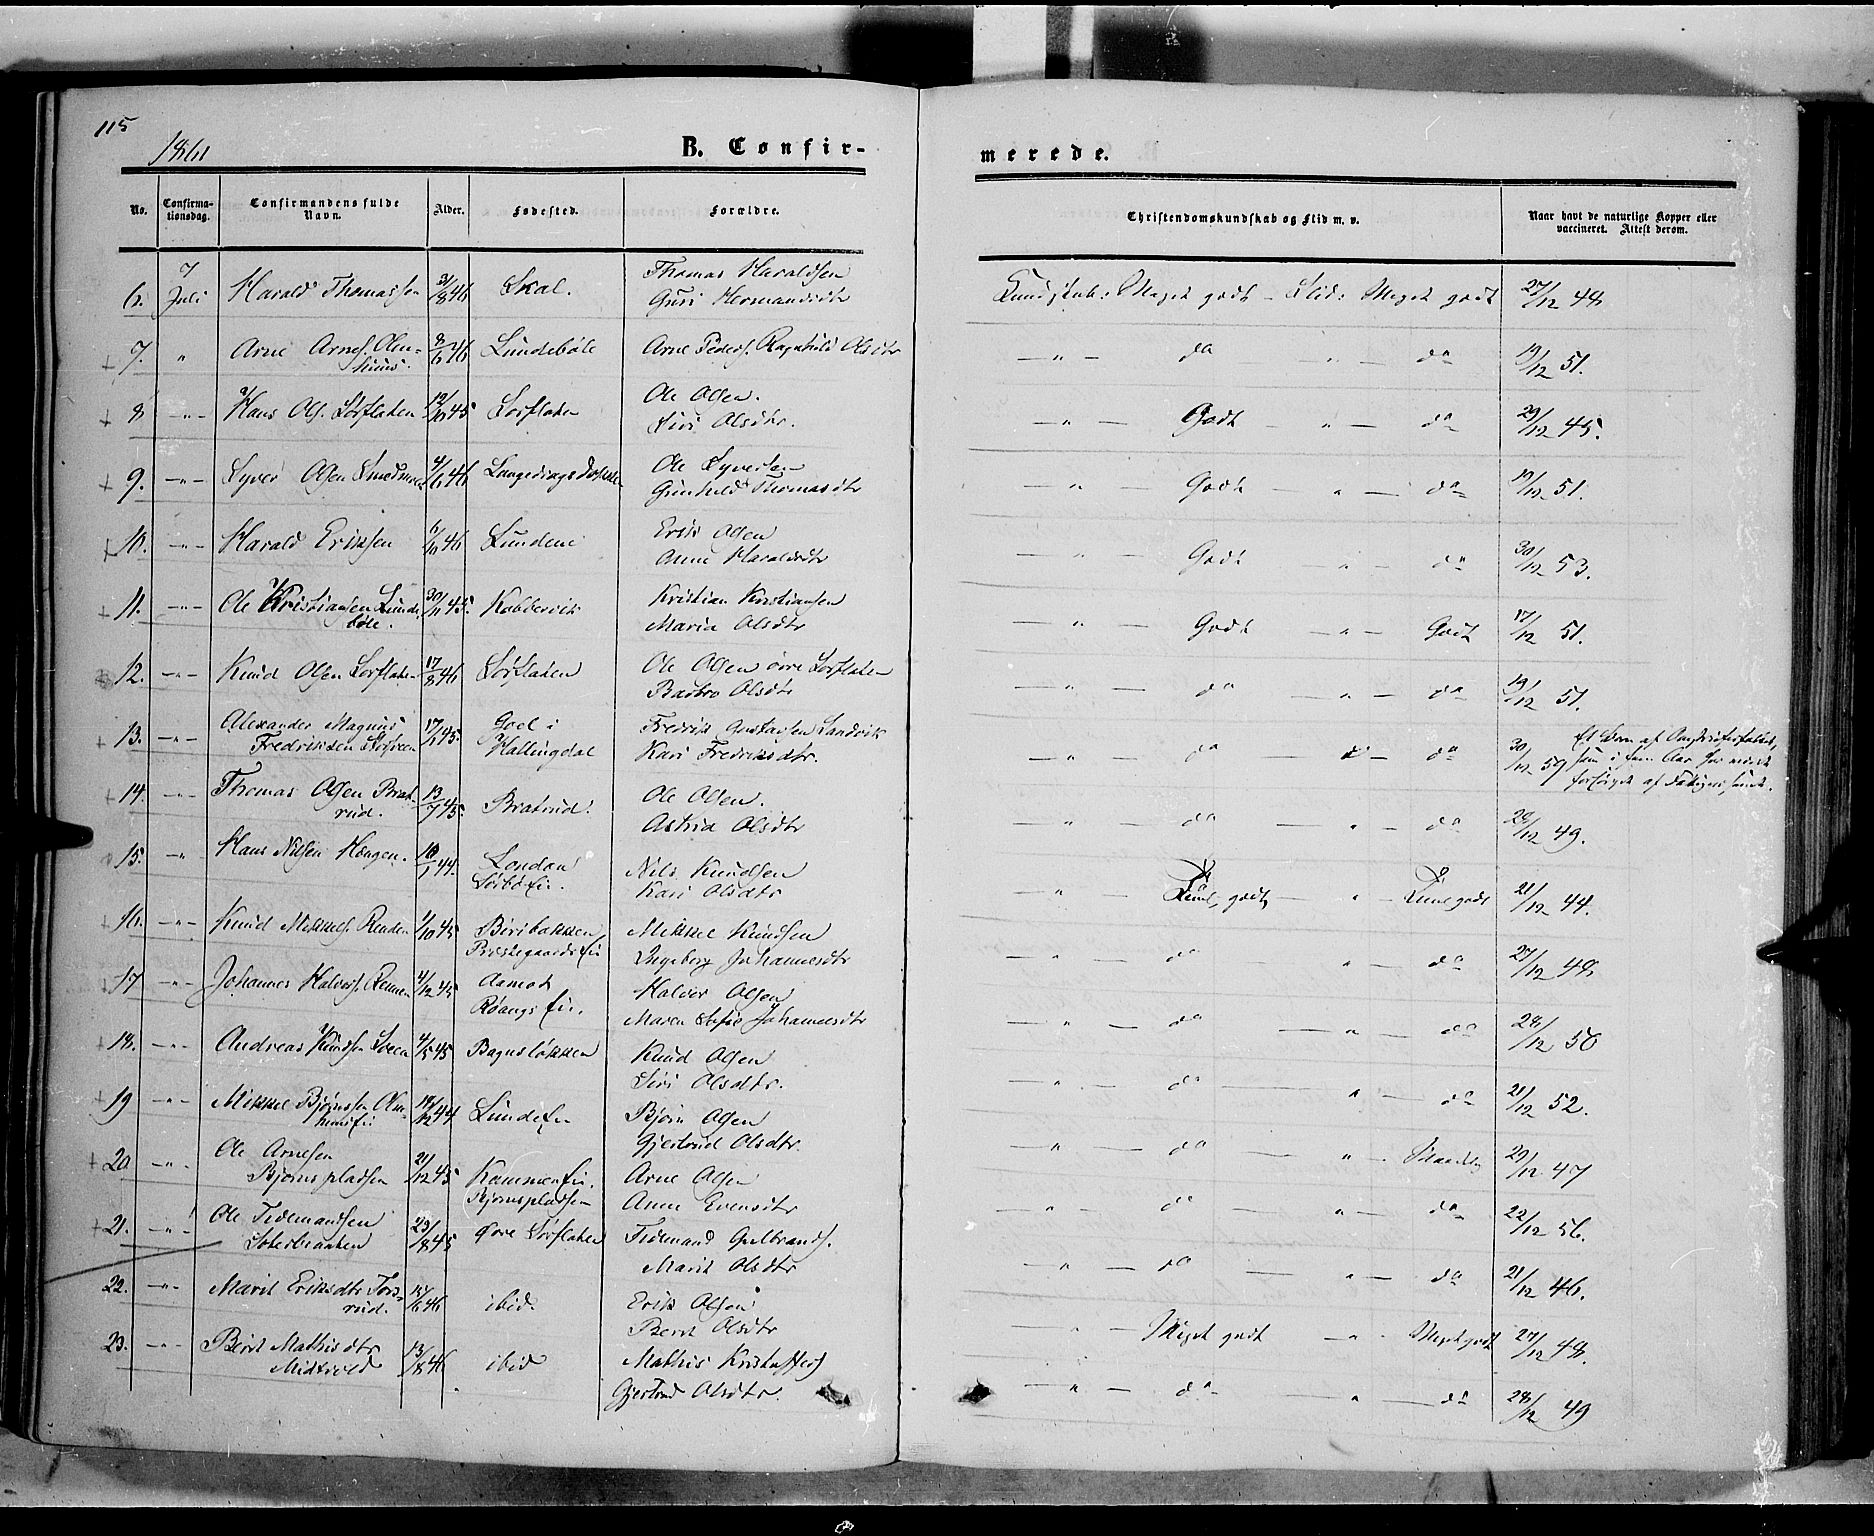 115
1861
B. Confir-
merede.
No.
Confirma-
tionsdag.
Confirmandens fulde
Navn.
Alder.
Fødested.
Forældre.
Christendomskundskab og Flid m. v.
Naar havt de naturlige Kopper eller
vaccineret. Attest derom.
6. 7 Juli Harald Thomassen 31/8 46 Skal. Thomas Haraldsen
Guri Hermandsdtr
Kundskab: Meget godt - Flid: Meget godt 27/12 48
7. " Arne Arnes. Olen- 8/6 46 Lundebøle Arne Peders. Ragnhild Olsdtr
huus.
" do " do 19/12 51.
8 " Hans Ols. Sørflaten 45 Sørflaten Ole Olsen.
Siri Olsdtr.
" Godt " do 29/12 45.
9. " Syver Olsen 4/6 46 Ole Syversen
Gunhild Thomasdtr
" Godt " do 19/12 51.
10. " Harald Eriksen 6/10 46 Lundene Erik Olsen
Anne Haraldsdtr
" Godt " do 30/12 53.
11. " Ole Kristiansen Lunde- 30/11 45. Kabbervik Kristian Kristiansen
bøle. Maria Olsdtr
" Godt " Godt 17/12 51.
12. " Knud Olsen Sørflaten 17/8 46 Sørflaten Ole Olsen øvre Sørflaten
Barbro Olsdtr
" do " do 19/12 51.
13. " Alexander Magnus 45. Goel i Fredrik Gustavsen Sandvik
Fredriksen Hallingdal Kari Fredriksdtr.
" do " do 30/12 59
som i fem Aar har været
forsørget af
14. " Thomas Olsen Brat- 13/7 45. Bratrud. Ole Olsen.
rud. Astrid Olsdtr
" do " do 28/12 49.
15. " Hans Nilsen Haugen. 44. London Nils Knudsen
Kari Olsdtr
" godt " godt 21/12 44.
16. " Knud Mikkels. 1/10 45 Biribakken Mikkel Knudsen
Præstegaardsei Ingeberg Johannesdtr
" do " do 27/12 48
17 " Johannes Halvors. 4/12 45 Aamot Halvor Olsen
Maren Sofie Johannesdtr
" do " do 28/12 50
18. " Andreas Knudsen 4/5 45 Bagnsløkken Knud Olsen
Siri Olsdtr.
" do " do 21/12 52.
19 " Mikkel Bjørnssen 44 Bjørn Olsen
Gjertrud Olsdtr.
" do " 29/12 47
20 " Ole Arnesen 21/12 45 Arne Olsen
Bjørnspladsen Bjørnspladsen Anne Evensdtr
" do " do 22/12 56.
21. " Ole Tidemandsen 23/8 45 Øvre Sørflaten Tidemand Gulbrands.
Marit Olsdtr
" do " do 21/12 46.
22. " Marit Eriksdtr 15/6 46 ibid. Erik Olsen
rud. Berit Olsdtr
" Meget godt " Meget godt 27/12 48.
23. " Berit Mathisdtr 13/8 46 ibid Mathis Kristoffers
Midtvold Gjertrud Olsdtr.
" do " do 28/12 49